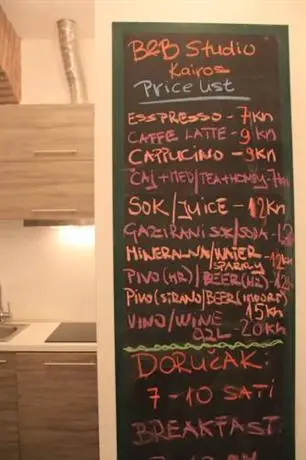 B&B Studio
Kairos
Price list
ESSPRESSO - 7 KN
CAFFE LATTE - 9 KN
CAPPUCINO - 9 KN
ČAJ+MED/TEA+HONEY-7
SOK/JUICE - 12 KN
GAZIRANI SOK/SODA -
MINERALNA/WATER
SPARKLY
PIVO (HR)/BEER(HR)
PIVO (STRANO/BEER(
15 KN
VINO/WINE
0,2L - 20 KN
DORUČAK:
7-10 SATI
BREAKFAST: